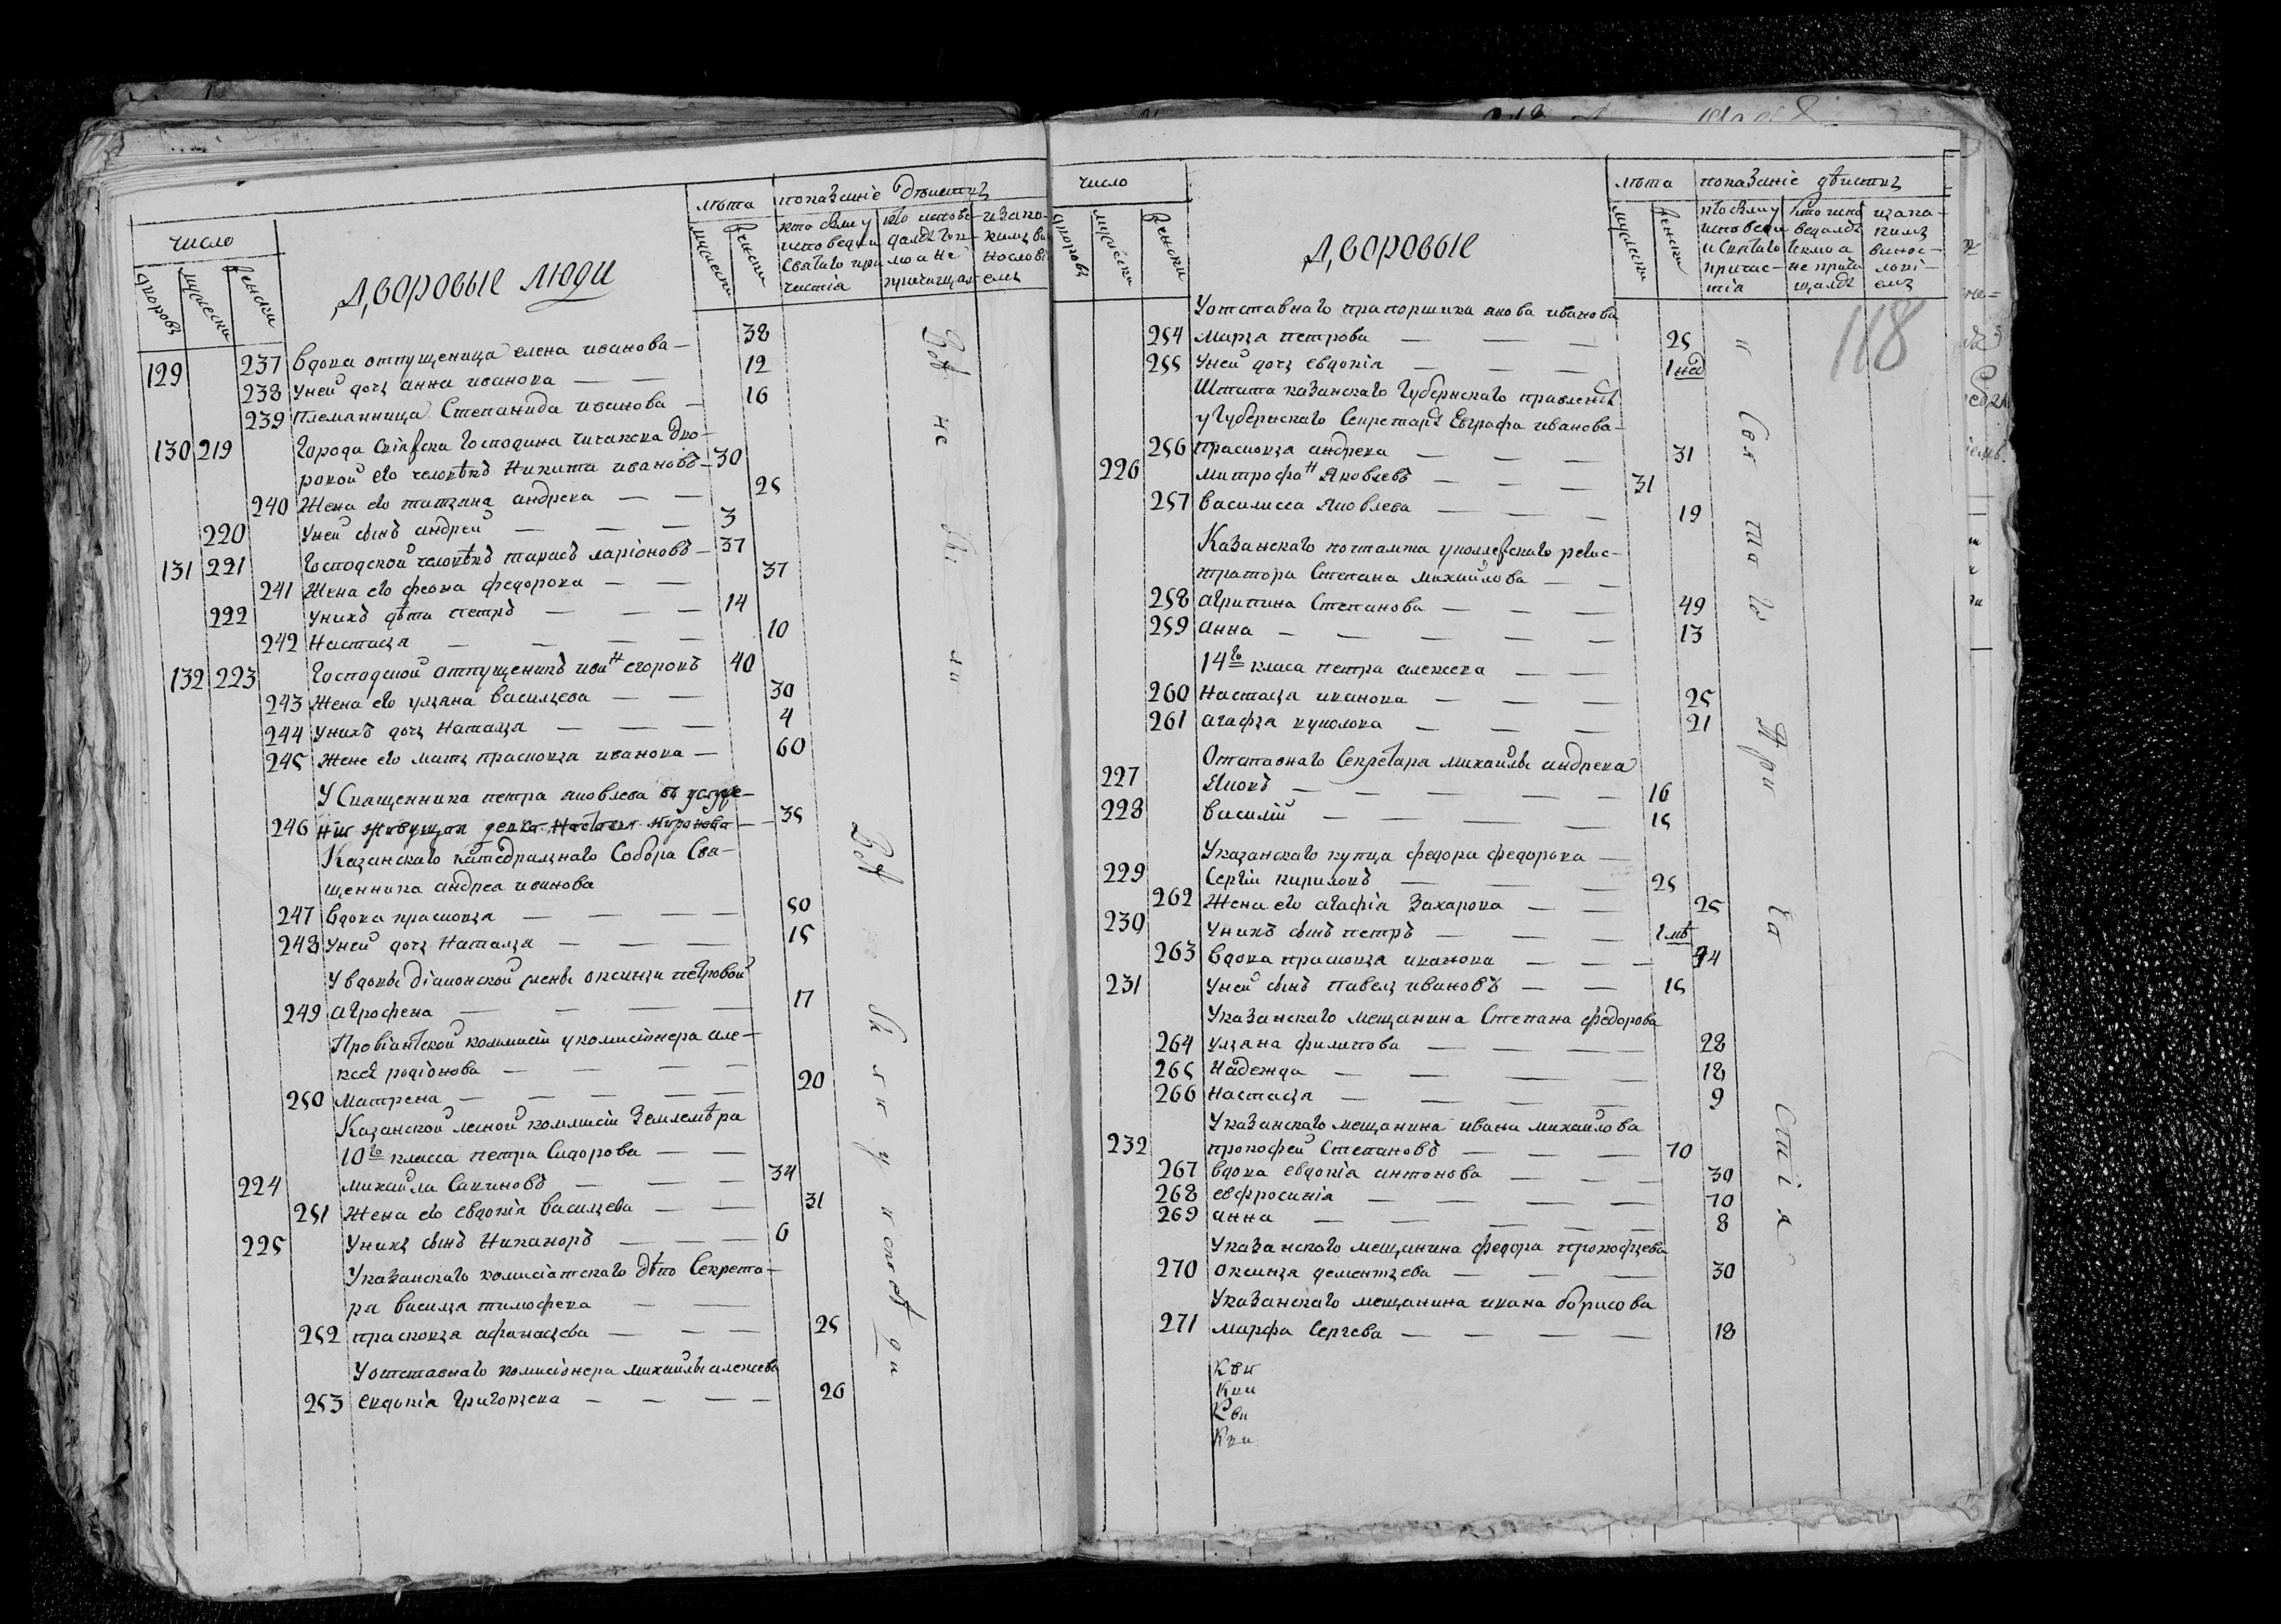 число
дворовъ
мужески
женски
Дворовые люди
лѣта
мужески
женски
показаніе дѣистиъ
кто были у исповеди и святаго причастія
кто испове-далсь токмо а не причищал
изакакимъ винословіемъ
129 237 Вдова отпущеница елена иванова — 38
238 Унеи дочь анна иванова — — 12
239 Племянница Степанида иванова — 16
130 219 Города Господина дво-
ровой его человѣкъ Никита ивановъ — 30
240 Жена его татьяна андрева — — 25
220 Унеи сынъ андреи — — — 3
131 221 Господской человѣкъ тарасъ ларіоновъ — 37
241 Жена его феона федорова — — 37
222 Унихъ дѣти петръ — — — 14
242 Настасья — — — — 10
132 223 Господской отпущеникъ иванъ егоровъ 40
243 Жена его ульяна васильева — — 30
244 Унихъ дочь Наталья — — — 4
245 Жене его мать прасковья иванова — 60
У Священника петра яковлева въ услуже-
246 нiи живущая девка Настасья Миронова — 35
Казанскаго катедральнаго Собора Свя-
щенника андрея иванова
247 Вдова прасковья — — — — 50
248 Унеи дочь Наталья — — — 15
У вдовы діаконской жены оксиньи петровой
249 агрофена — — — — 17
Провіантской коммисіи укомисіонера але-
ксея родіонова — — — —
250 Матрена — — — — — 20
Казанской лесной коммисіи Землемѣра
10го класса петра Сидорова — —
224 михаила Савиновъ — — — 34
251 Жена его евдокія васильева — — 31
225 Унихъ сынъ Никаноръ — — — 6
Указанскаго комисіатскаго дѣпо Секрета-
ря василья тимофева — —
252 прасковья афанасьева — — — 25
Уотставнаго комисіонера михаилы алексева
253 евдокія григорьева — — — — 26
Всѣ не бы ли
Всѣ не бы у исповѣди
число
дворовъ
мужески
женски
Дворовые
лѣта
мужески
женски
показаніе дѣистиъ
кто были у исповеди и святаго причастія
кто испо ведалсь токмо а не прича щалсь
изакакимъ винословіемъ
118
Уотставнаго прапорщика якова иванова
254 Марья петрова — — — 25 "
255 Унеи дочь евдокія — — — 1 нед
Штата казанскаго Губернскаго правленія
у Губернскаго Секретаря Евграфа иванова —
256 прасковья андрева — — — 31
226 митрофанъ Яковлевъ — — — 31
257 василисса Яковлева — — — 19
Казанскаго почтамта уколлежскаго регис-
тратора Степана михаилова — —
258 агрипина Степанова — — — 49
259 анна — — — — — 13
14го класа петра алексева — —
260 Настасья иванова — — — 25
261 агафья куколова — — — 21
Отставнаго Секретаря михаилы андрева
227 Яковъ — — — — — 16
228 василій — — — — 15
Указанскаго купца федора федорова —
229 Сергіи кириловъ — — — 25
262 Жена его агафія Захарова — — 25
230 Унихъ сынъ петръ — — — 1 мѣ
263 Вдова прасковья иванова — — — 44
231 Унеи сынъ павелъ ивановъ — — 15
Указанскаго мещанина Степана федорова
264 ульяна филипова — — — 28
265 Надежда — — — — 18
266 Настасья — — — — 9
Указанскаго мещанина ивана михаилова
232 прокофеи Степановъ — — — 70
267 вдова евдокія антонова — — — 39
268 евфросинія — — — — 10
269 анна — — — — — 8
Указанскаго мещанина федора прокофьева
270 оксинья дементьева — — — 30
Указанскаго мещанина ивана борисова
271 марфа Сергева — — — — 18
Свя та го При ча стія